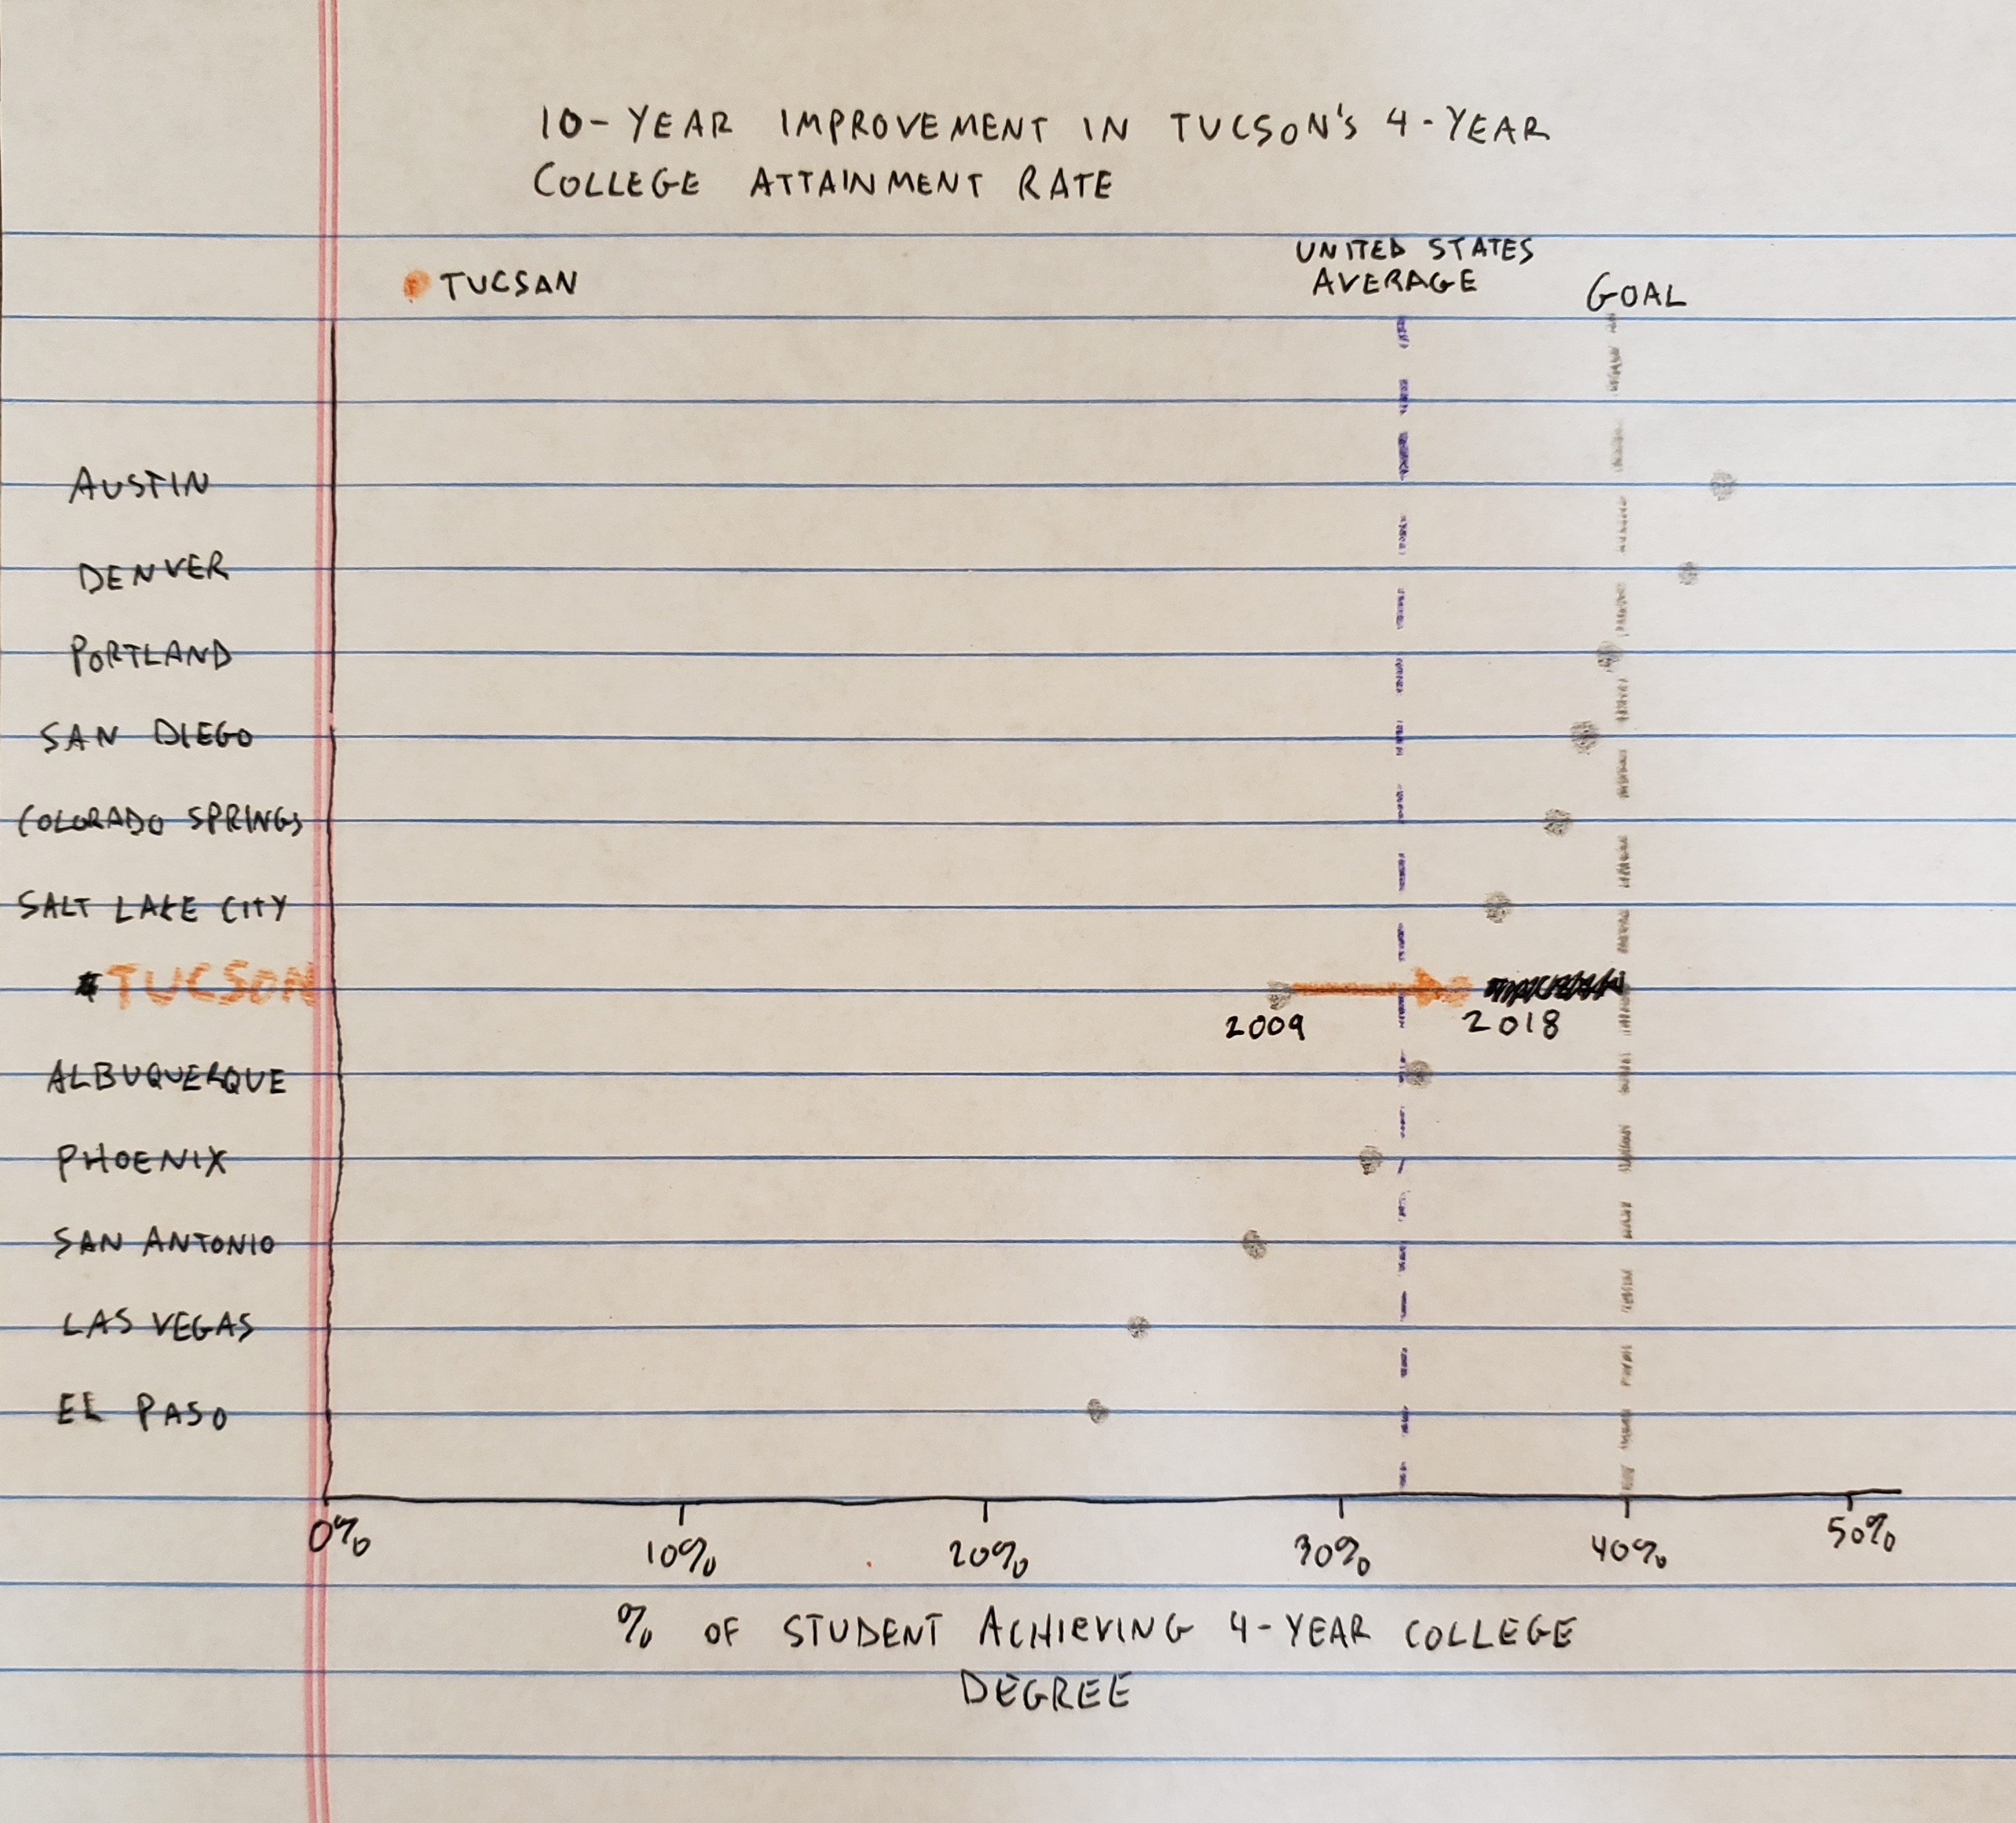 10-YEAR IMPROVEMENT IN TUCSON'S 4-YEAR
COLLEGE ATTAINMENT RATE
UNITED STATES
AVERAGE
TUCSAN
GOAL
AUSTIN
DENVER
PORTLAND
SAN DIEGO
COLORADO SPRINGS
SALT LAKE CITY
TUCSON
2009
2018
ALBUQUERQUE
PHOENIX
SAN ANTONIO
LAS VEGAS
EL PASO
0% 10% 20% 30% 40% 50%
% OF STUDENT ACHIEVING 4-YEAR COLLEGE
DEGREE